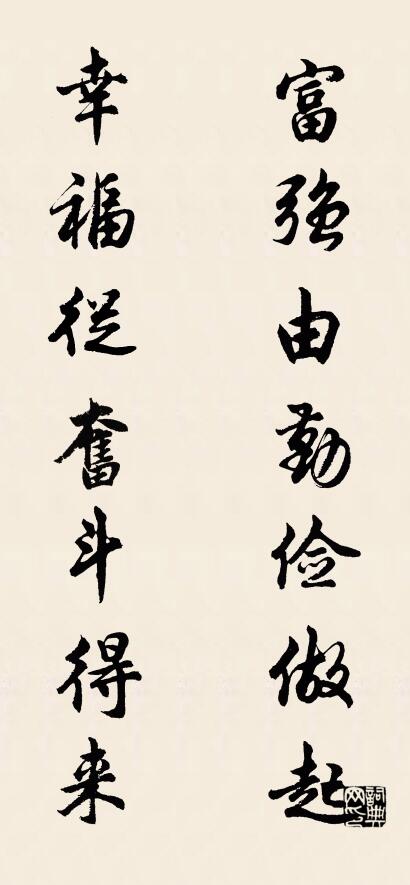 富强由勤俭做起
幸福從奮斗得来